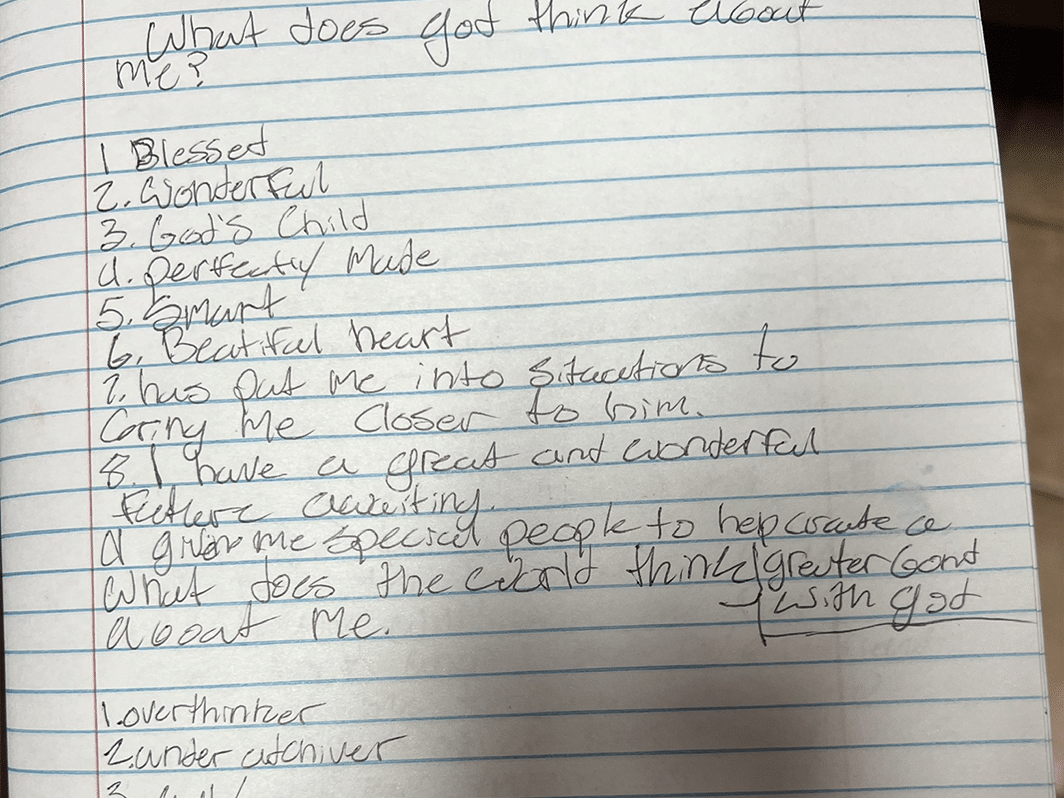 What does god think about
me?
1 Blessed
2. wonderful
3. God's Child
4. perfectly Made
5. Smart
6. Beatiful heart
7. has put me into situations to
bring me closer to him.
8. I have a great and wonderful
future awaiting.
9 given me special people to hep create a
greater bond
with god
What does the world think
about me.
1. overthinker
2. under atchiver
3.